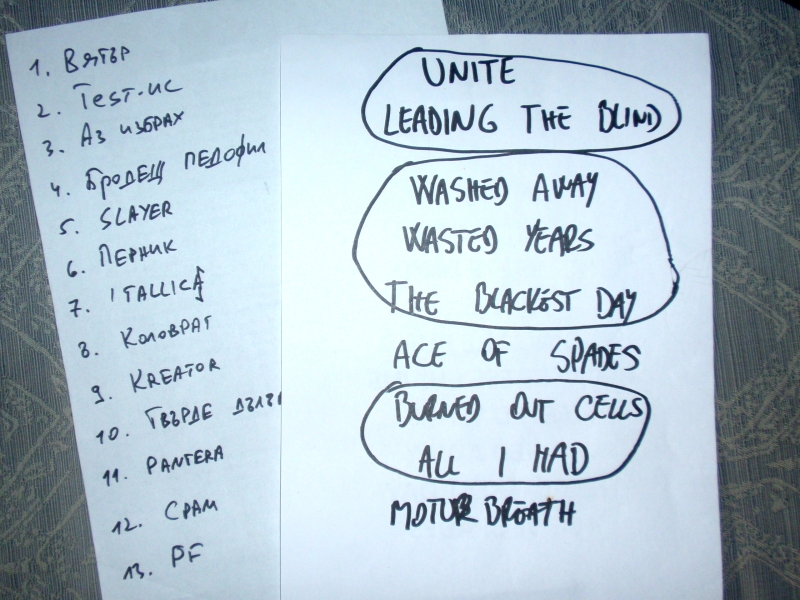 1. Вятър
2. Test-ис
3. Аз избрах
4. Бродещ педофил
5. SLAYER
6. Перник
7. ITALLICA
8. Коловрат
9. KREATOR
10. Твърде дълг
11. PANTERA
12. Срам
13. PF
UNITE
LEADING THE BLIND
WASHED AWAY
WASTED YEARS
THE BLACKEST DAY
ACE OF SPADES
BURNED OUT CELLS
ALL I HAD
MOTORBREATH